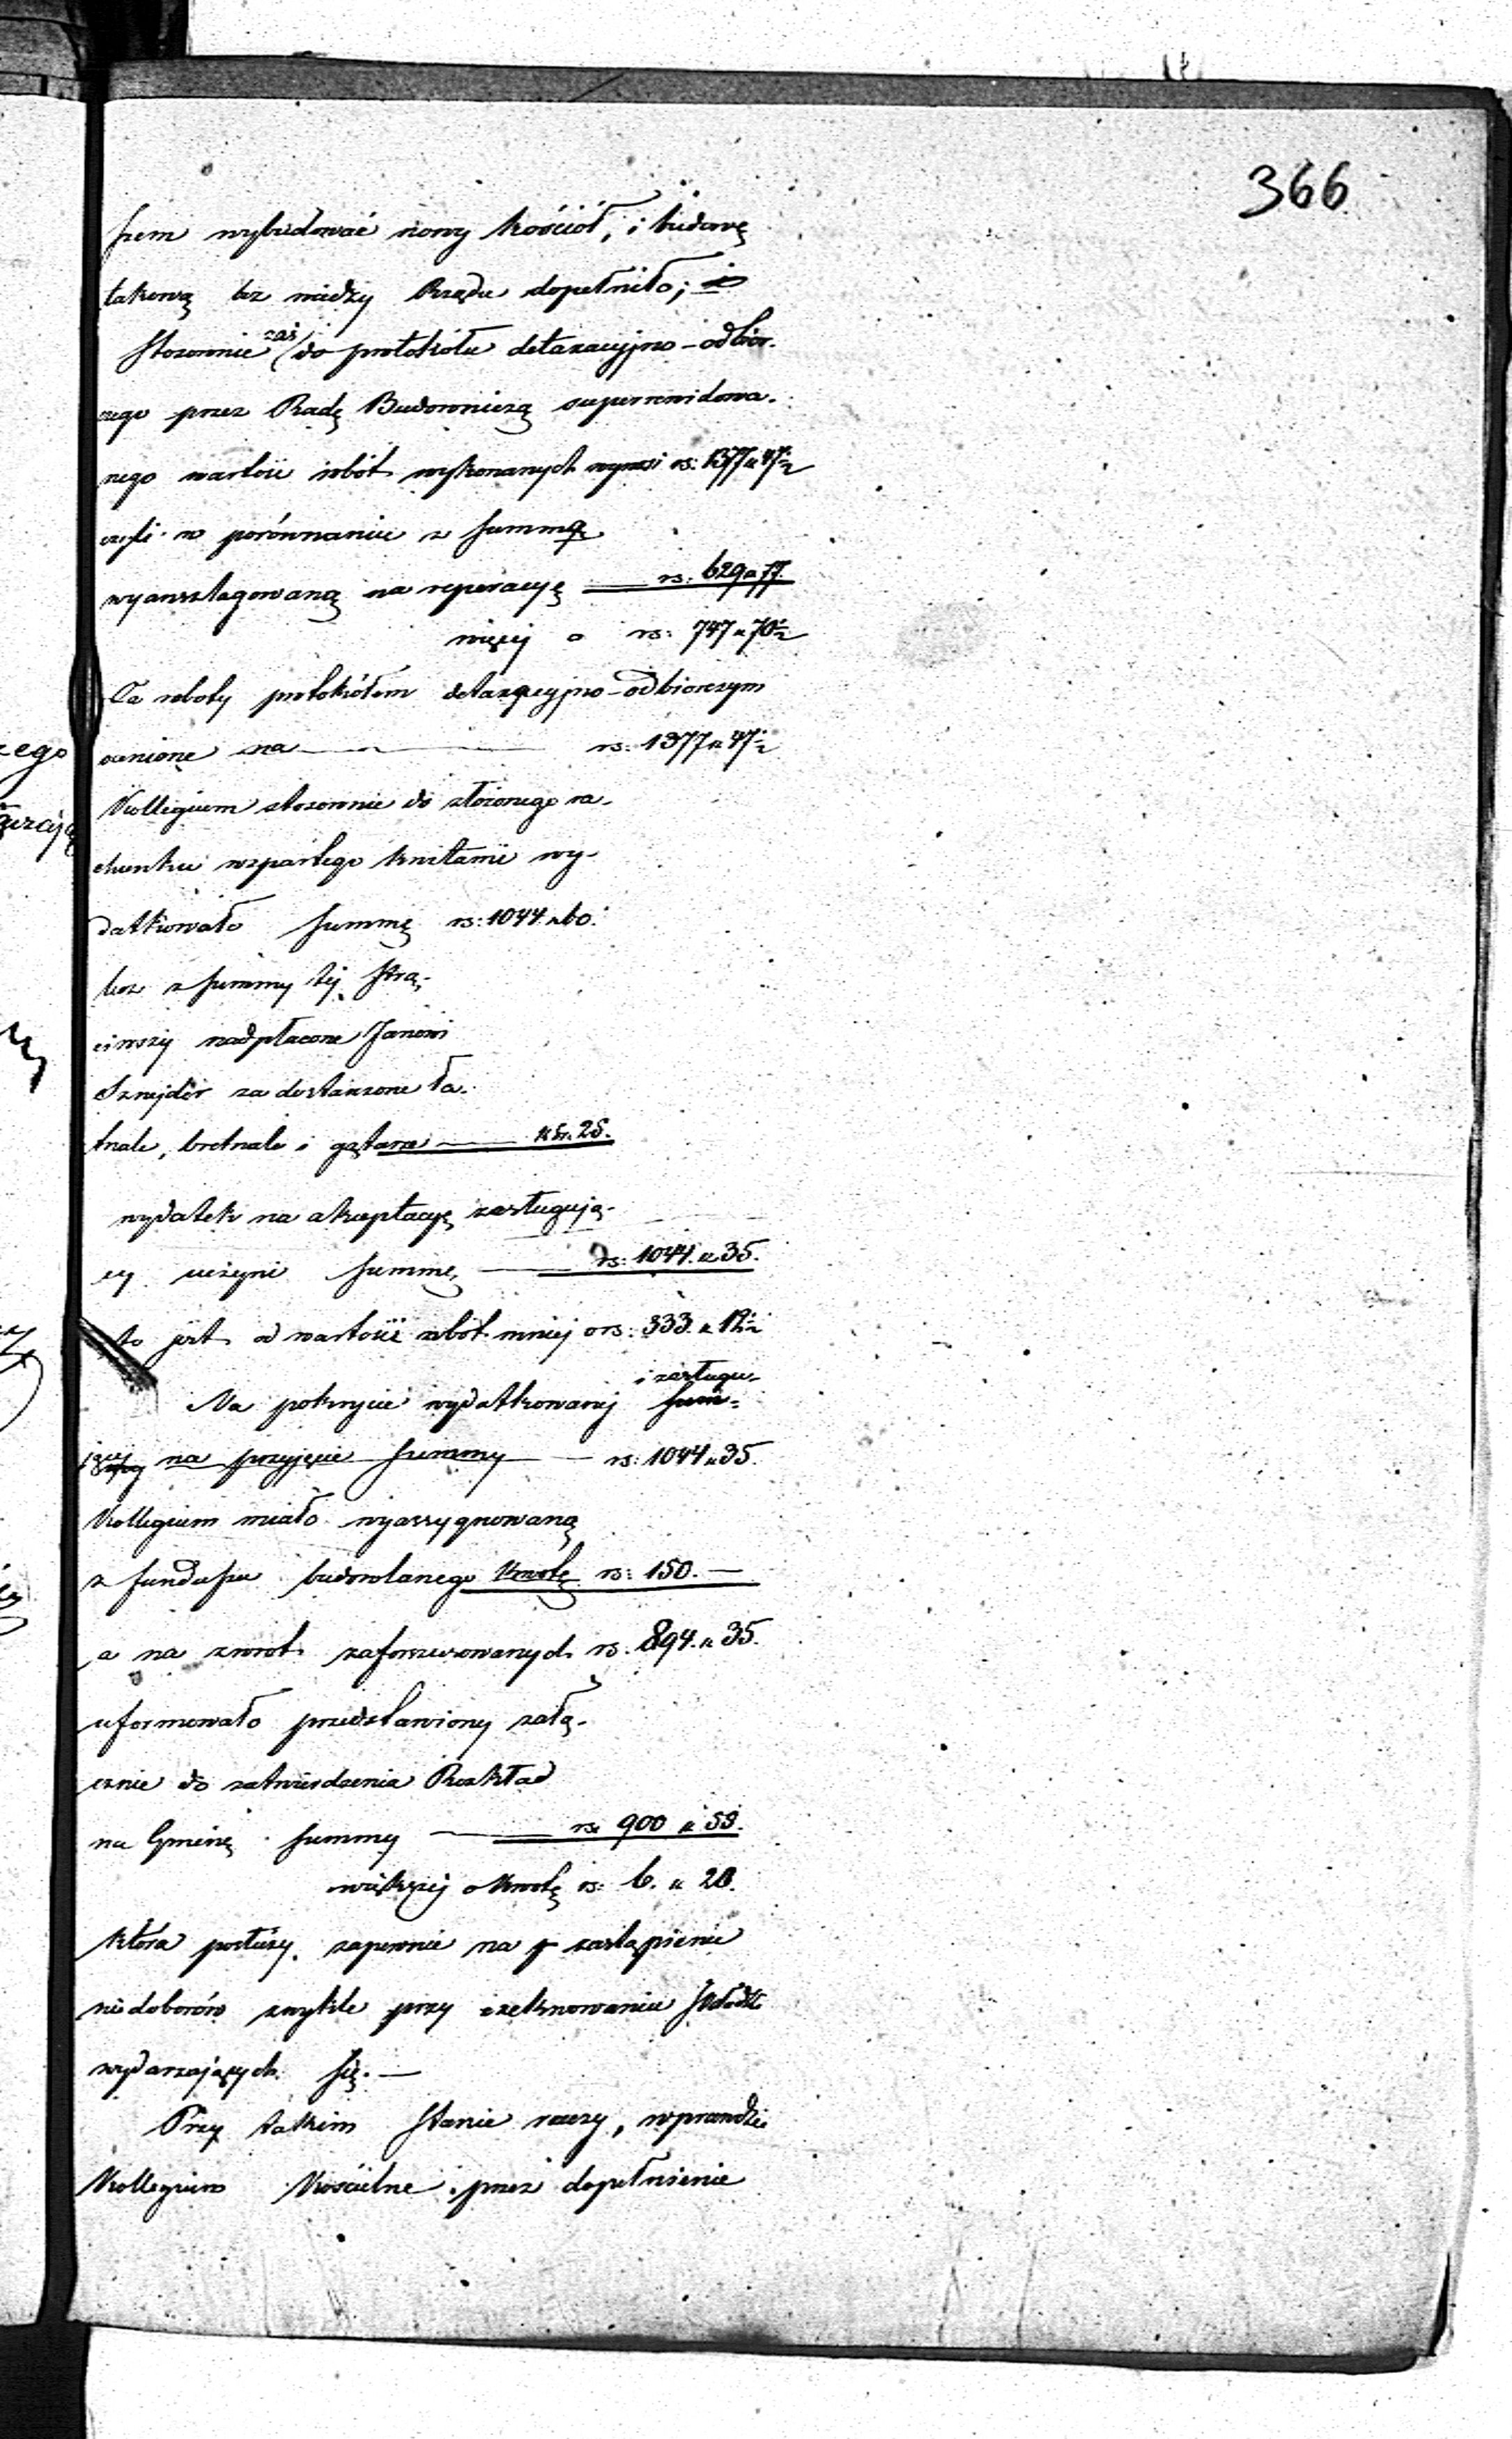 366
szem wybudować nowy kościół, i budowę
takową bez wiedzy Rządu dopełniło;
Stosownie zaś do protokółu detaxacyjno-odbior-
czego przez Radę Budowniczą superrewidowa-
nego wartość robót wykonanych wynosi rs: 1377 k 47½
czyli w porównaniu z summą
wyanszlagowaną na reperacyę — rs: 629 k 77.
więcej o rs: 747 k 70½
Za roboty protokółem detaxacyjno-odbiorczym
ocenione na — rs: 1377 k 47½
Kollegium stosownie do złożonego ra-
chunku wspartego kwitami wy-
datkowało summę rs: 1044 k 60.
lecz z summy tej strą-
ciwszy nadpłacone Janowi
Sznejder za dostarczone ła-
tnale, bretnale i gątarze — k. 25.
wydatek na akceptacyę zasługują-
cy uczyni summę — rs: 1044. k 35.
to jest od wartości robót mniej o rs: 333 k 12½
Na pokrycie wydatkowanej i zasługu-
jącej na przyjęcie summy — rs: 1044 k 35.
Kollegium miało wyassygnowaną
z funduszu budowlanego kwotę rs: 150. —
a na zwrot zaforszusowanych rs. 894. k 35.
uformowało przedstawiony załą-
cznie do zatwierdzenia Rozkład
na Gminę summy — rs. 900 k 55.
większej o kwotę rs: 6. k 20.
która posłuży zapewnie na zastąpienie
niedoborów zwykle przy exekwowaniu składek
wydarzających się. —
Przy takim stanie rzeczy, wprawdzie
Kollegium Kościelne przez dopełnienie